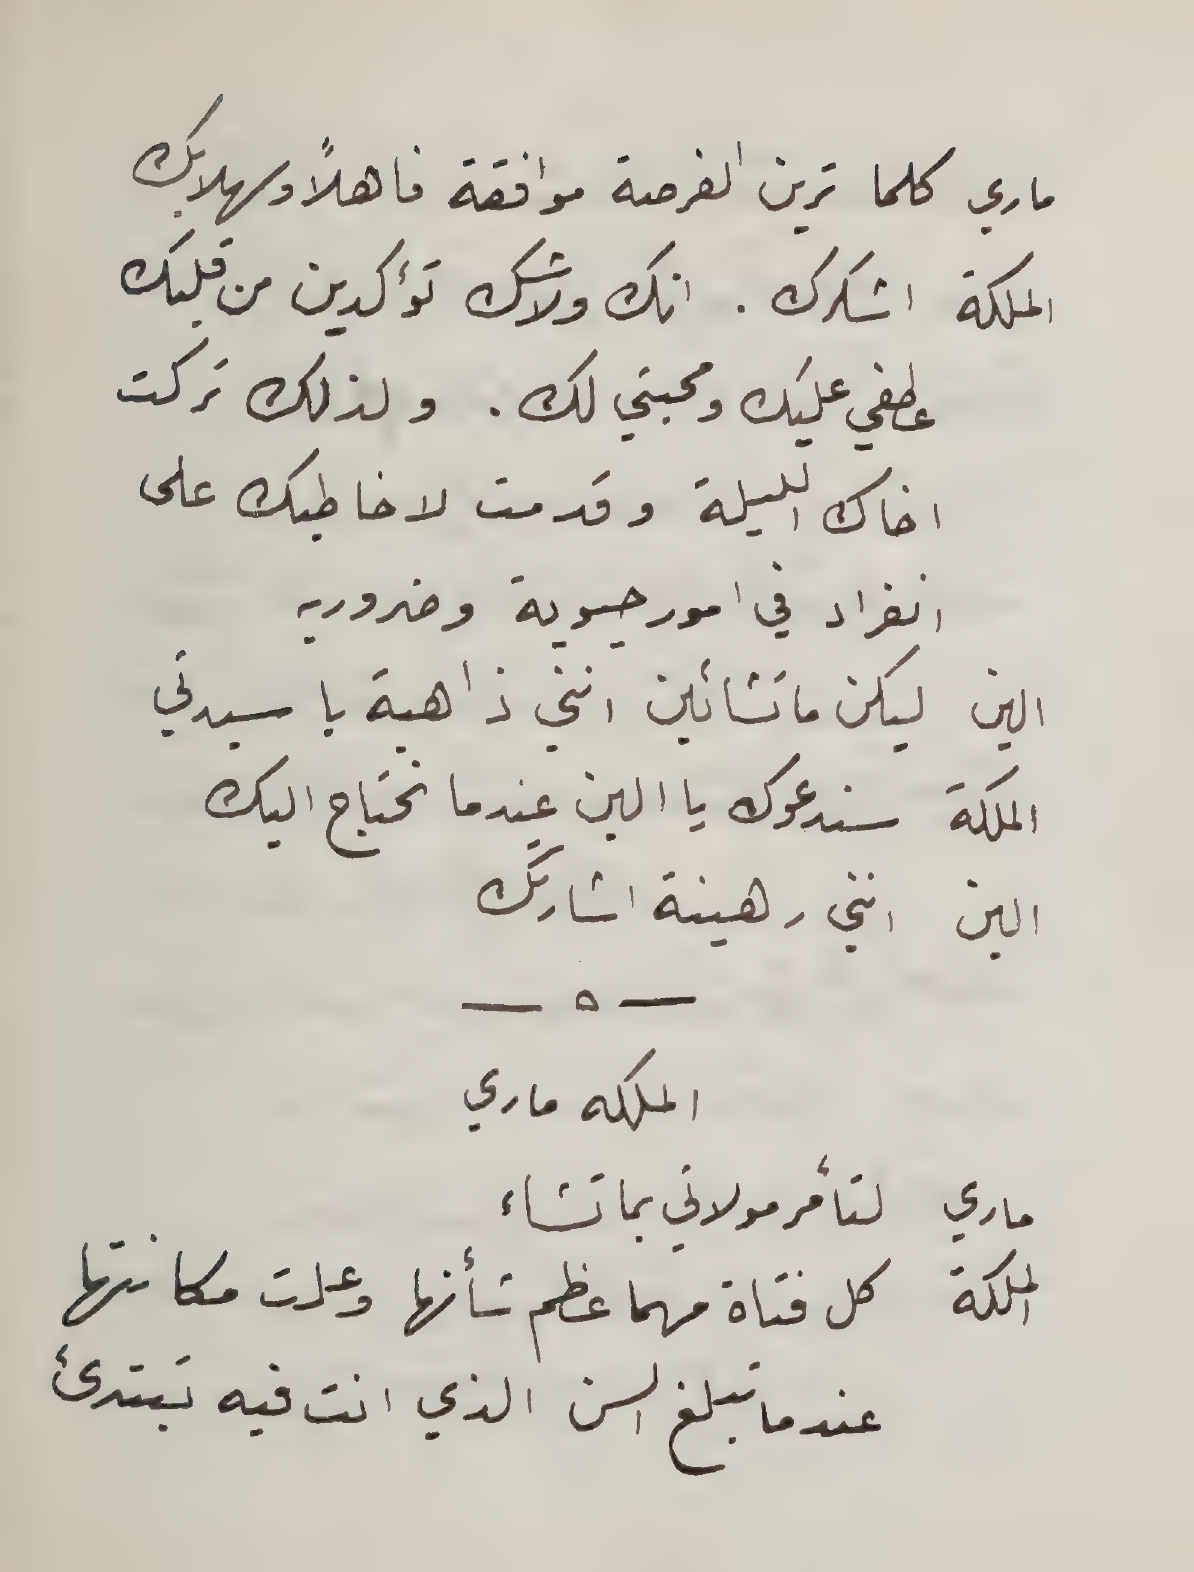 ماري كلما ترين الفرصة موافقة فاهلاً وسهلا بك
الملكة اشكرك . انك ولاشك تؤكدين من قلبك
عطفي عليك ومحبتي لك . ولذلك تركت
اخاك الليلة وقدمت لاخاطبك على
انفراد في امور حيوية وضروريه
الين ليكن ما تشائين انني ذاهبة يا سيدتي
الملكة سندعوك يا الين عندما نحتاج اليك
الين انني رهينة اشارتك
— ٥ —
الملكه ماري
ماري لتأمر مولاتي بما تشاء
الملكة كل فتاة مهما عظم شأنها وعلت مكانتها
عندما تبلغ السن الذي انت فيه تبتدئ